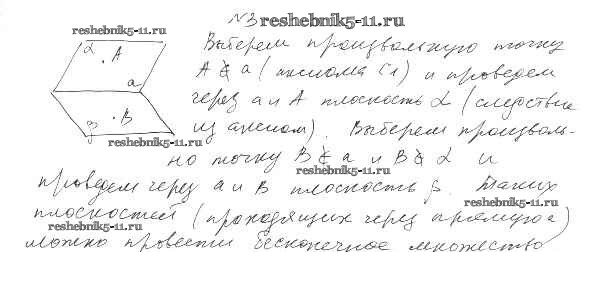 №3 reshebnik5-11.ru
reshebnik5-11.ru
Выберем произвольную точку
α A
A ∉ a (аксиома C1) и проведем
a
через a и A плоскость α (следствие
B
из аксиом). Выберем произволь-
β
reshebnik5-11.ru
но точку B ∉ a и B ∉ α и
reshebnik5-11.ru
проведем через a и B плоскость β. Таких
плоскостей (проходящих через прямую a)
reshebnik5-11.ru
reshebnik5-11.ru
можно провести бесконечное множество